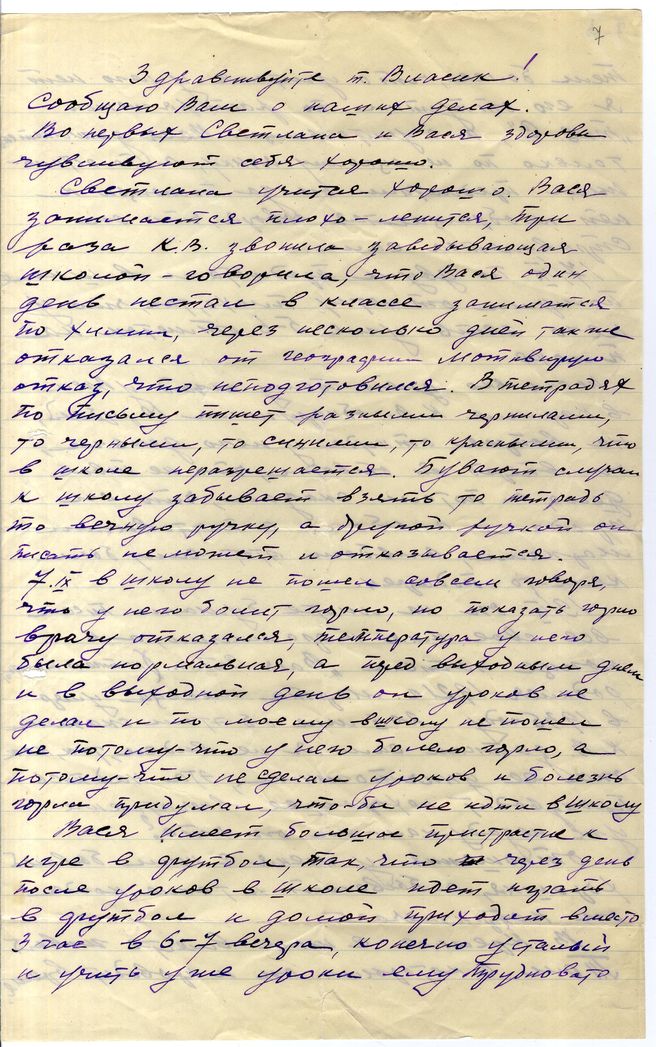 7
Здравствуйте т. Власик!
Сообщаю Вам о наших делах.
Во первых Светлана и Вася здоровы
чувствуют себя хорошо.
Светлана учится хорошо. Вася
занимается плохо – ленится, три
раза К.В. звонила заведывающая
школой – говорила, что Вася один
день нестал в классе заниматся
по химии, через несколько дней также
отказался от географии мотивируя
отказ, что неподготовился. В тетрадях
по письму пишет разными чернилами,
то черными, то синими, то красными, что
в школе неразрешается. Бувают случаи
к школу забывает взять то тетрадь
то вечную ручку, а другой ручкой он
писать не может и отказывается.
7.IX в школу не пошел совсем говоря,
что у него болит горло, но показать горло
врачу отказался, температура у него
была нормальная, а пред выходным днем
и в выходной день он уроков не
делал и по моему в школу не пошел
не потому-что у него болело горло, а
потому-что не сделал уроков и болезнь
горла придумал, что-бы не идти в школу
Вася имеет большое пристрастие к
игре в футбол, так, что через день
после уроков в школе идет играть
в футбол и домой приходит вместо
3 час в 6-7 вечера, конечно усталый
и учить уже уроки ему трудновато